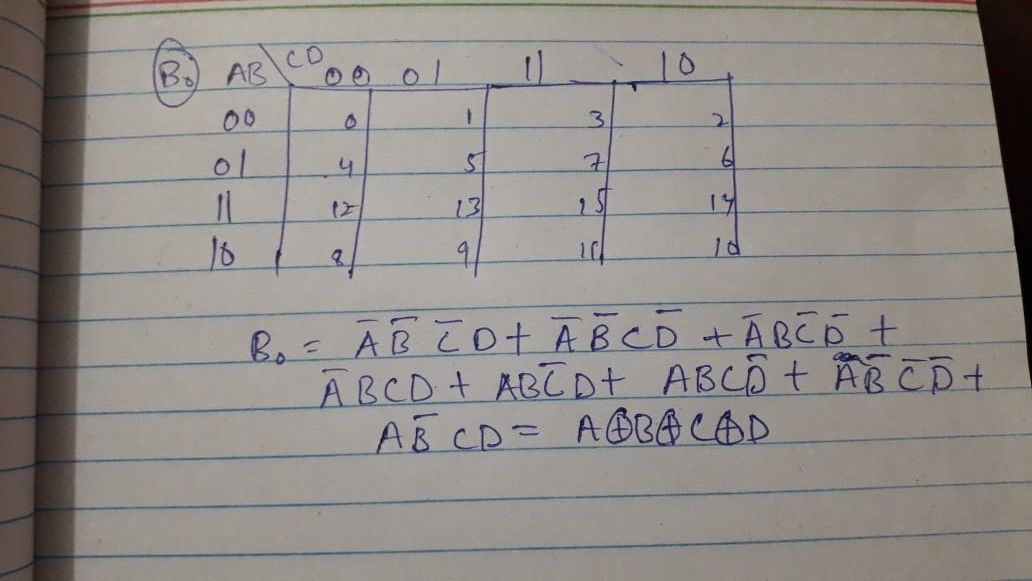 B₀ AB\CD 00 01 11 10
00 0 1 3 2
01 4 5 7 6
11 12 13 15 14
10 8 9 11 10
B₀ = A̅ B̅ C̅ D + A̅ B̅ C D̅ + A̅ B C̅ D̅ +
A̅ B C D + A B C̅ D + A B C D̅ + A B̅ C̅ D̅ +
A B̅ C D = A⊕B⊕C⊕D